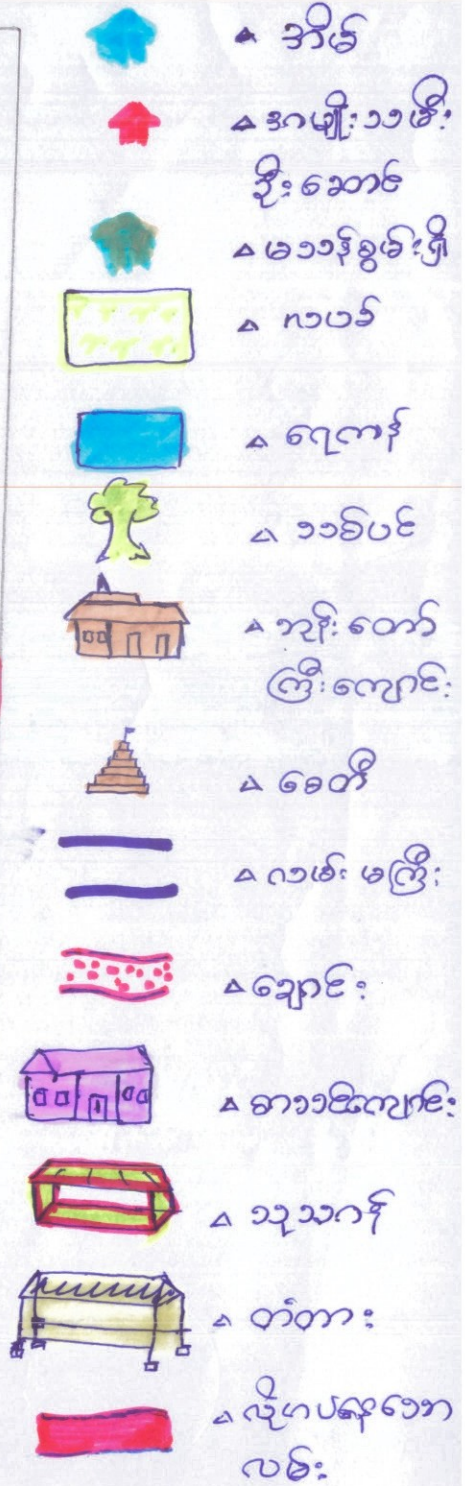 အိမ်
အမျိုးသမီး
ဦးဆောင်
မသန်စွမ်းရှိ
လယ်
ရေကန်
သစ်ပင်
ဘုန်းတော်
ကြီးကျောင်း
စေတီ
လမ်းမကြီး
ချောင်း
စာသင်ကျောင်း
သုသာန်
တံတား
လမ်း